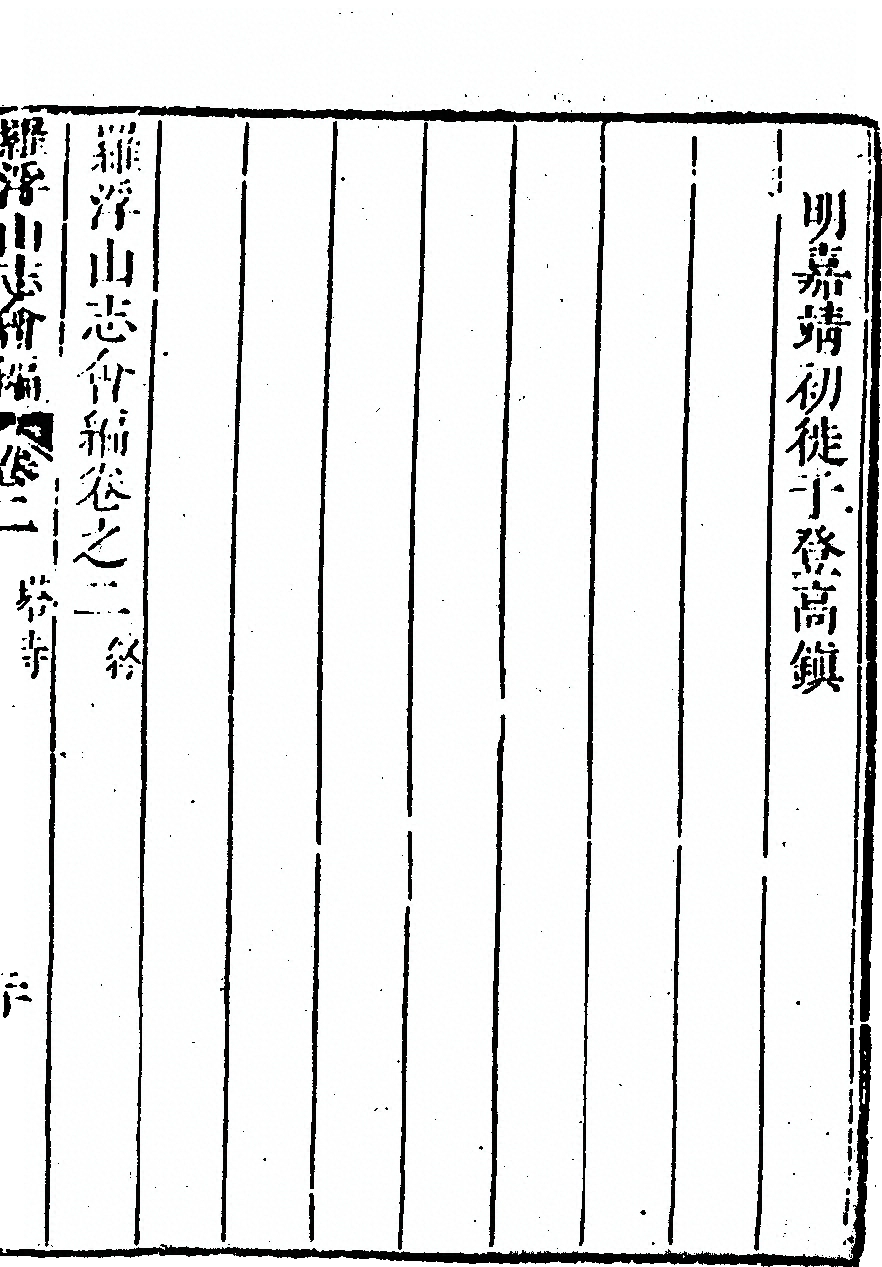 明嘉靖初徙于登高鎮
羅浮山志會編卷之二終
羅浮山志會編 卷二 塔寺